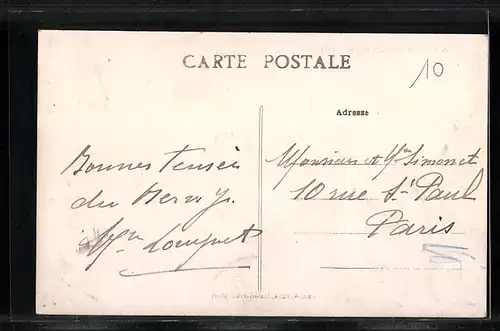 CARTE POSTALE
10
Adresse
Bonnes Pensées
du Berry.
Monsieur et Mme Simonet
10 rue St Paul
Paris